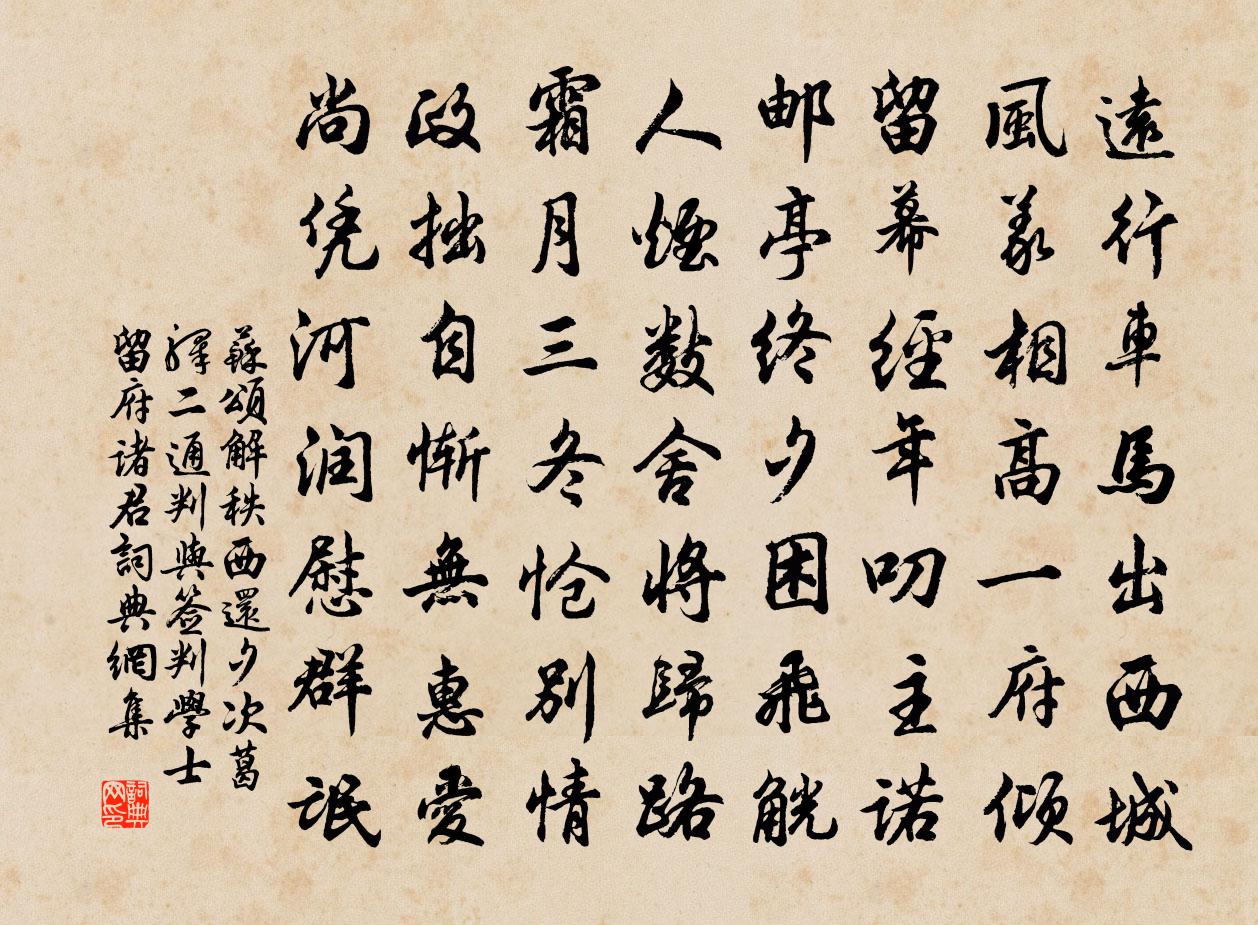 遠行車馬出西城
風義相高一府傾
留幕經年叨主諾
邮亭終夕困飛觥
人煙數舍將歸路
霜月三冬怆別情
政拙自惭無惠愛
尚凭河润慰群氓
蘇頌解秩西還夕次葛
驛二通判與签判學士
留府诸君詞典網集
詞典网印